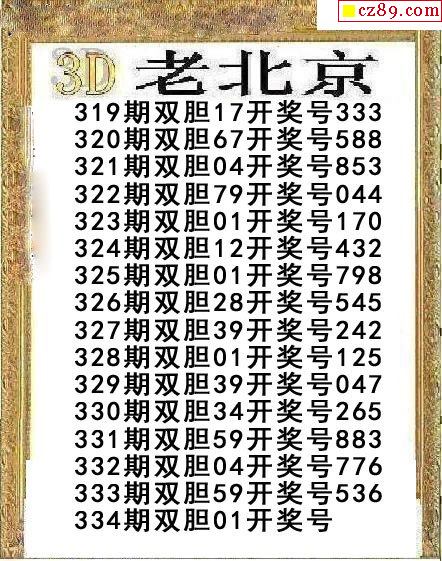 cz89.com
3D 老北京
319期双胆17开奖号333
320期双胆67开奖号588
321期双胆04开奖号853
322期双胆79开奖号044
323期双胆01开奖号170
324期双胆12开奖号432
325期双胆01开奖号798
326期双胆28开奖号545
327期双胆39开奖号242
328期双胆01开奖号125
329期双胆39开奖号047
330期双胆34开奖号265
331期双胆59开奖号883
332期双胆04开奖号776
333期双胆59开奖号536
334期双胆01开奖号